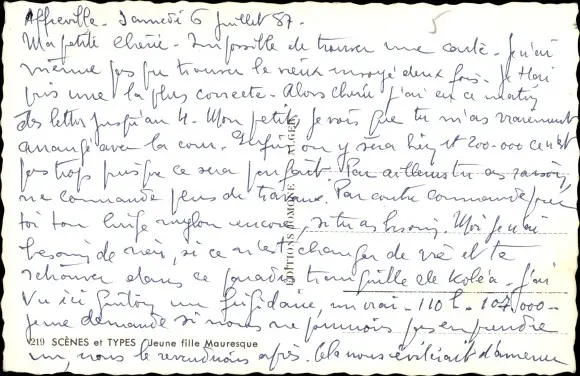 Affreville - Samedi 6 Juillet 57.
5
Ma petite chérie - Impossible de trouver une carte - Je n'ai
même pas pu trouver le vieux envoyé deux fois. Je t'ai
pris une la plus correcte - Alors chérie j'ai eu ce matin
des lettres jusqu'au 4. Mon petit, je vois que tu m'as vraiment
arrangé avec la cour. Enfin on y sera bien et 200.000 ce n'est
pas trop puisque ce sera parfait. Par ailleurs tu as raison,
ne commande plus de travaux. Par contre commande pour
toi ton linge nylon encore, si tu as besoin. Moi je n'ai
besoin de rien, si ce n'est changer de vie et te
retrouver dans ce paradis tranquille de Koléa - J'ai
vu ici un frigidaire, un vrai - 110 l - 107.000 -
Je me demande si nous ne pourrions pas en prendre
un, nous le revendrions après. Cela nous éviterait d'amener
219 SCÈNES et TYPES Jeune fille Mauresque
ÉDITIONS JOMONE - ALGER